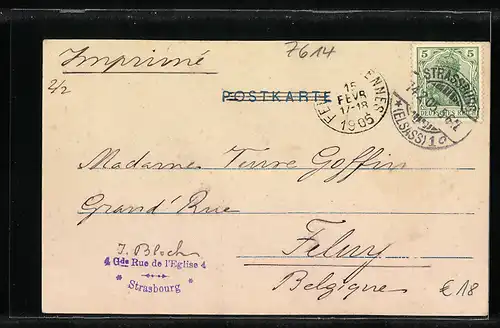 Imprimé
7614
2/2
5 5
STRASSBURG
(ELSASS) 1 d
POSTKARTE
15
FEVR
17-18
1905
Madame
Goffin
Grand' Rue
J. Bloch
4 Gde Rue de l'Eglise 4
* Strasbourg *
Feluy
Belgique
€ 18